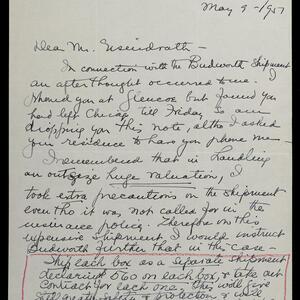 May 9-/957
Dear Mr. Eisendrath -
In connection with the Budworth Shipment
an afterthought occurred to me.
Phoned you at Glencoe but found you
had left Chicago till Friday so am
dropping you this note, altho I asked
your residence to have you phone me -
I remembered that in handling
an outsize huge valuation, I
took extra precautions on the shipment
even tho it was not called for in the
insurance policy. Therefore on this
expensive shipment I would instruct
Budworth further that in the case -
Ship each box as a separate shipment
declaring 560 on each box, & take out
Contract for each one. They will give
safety & protection, &